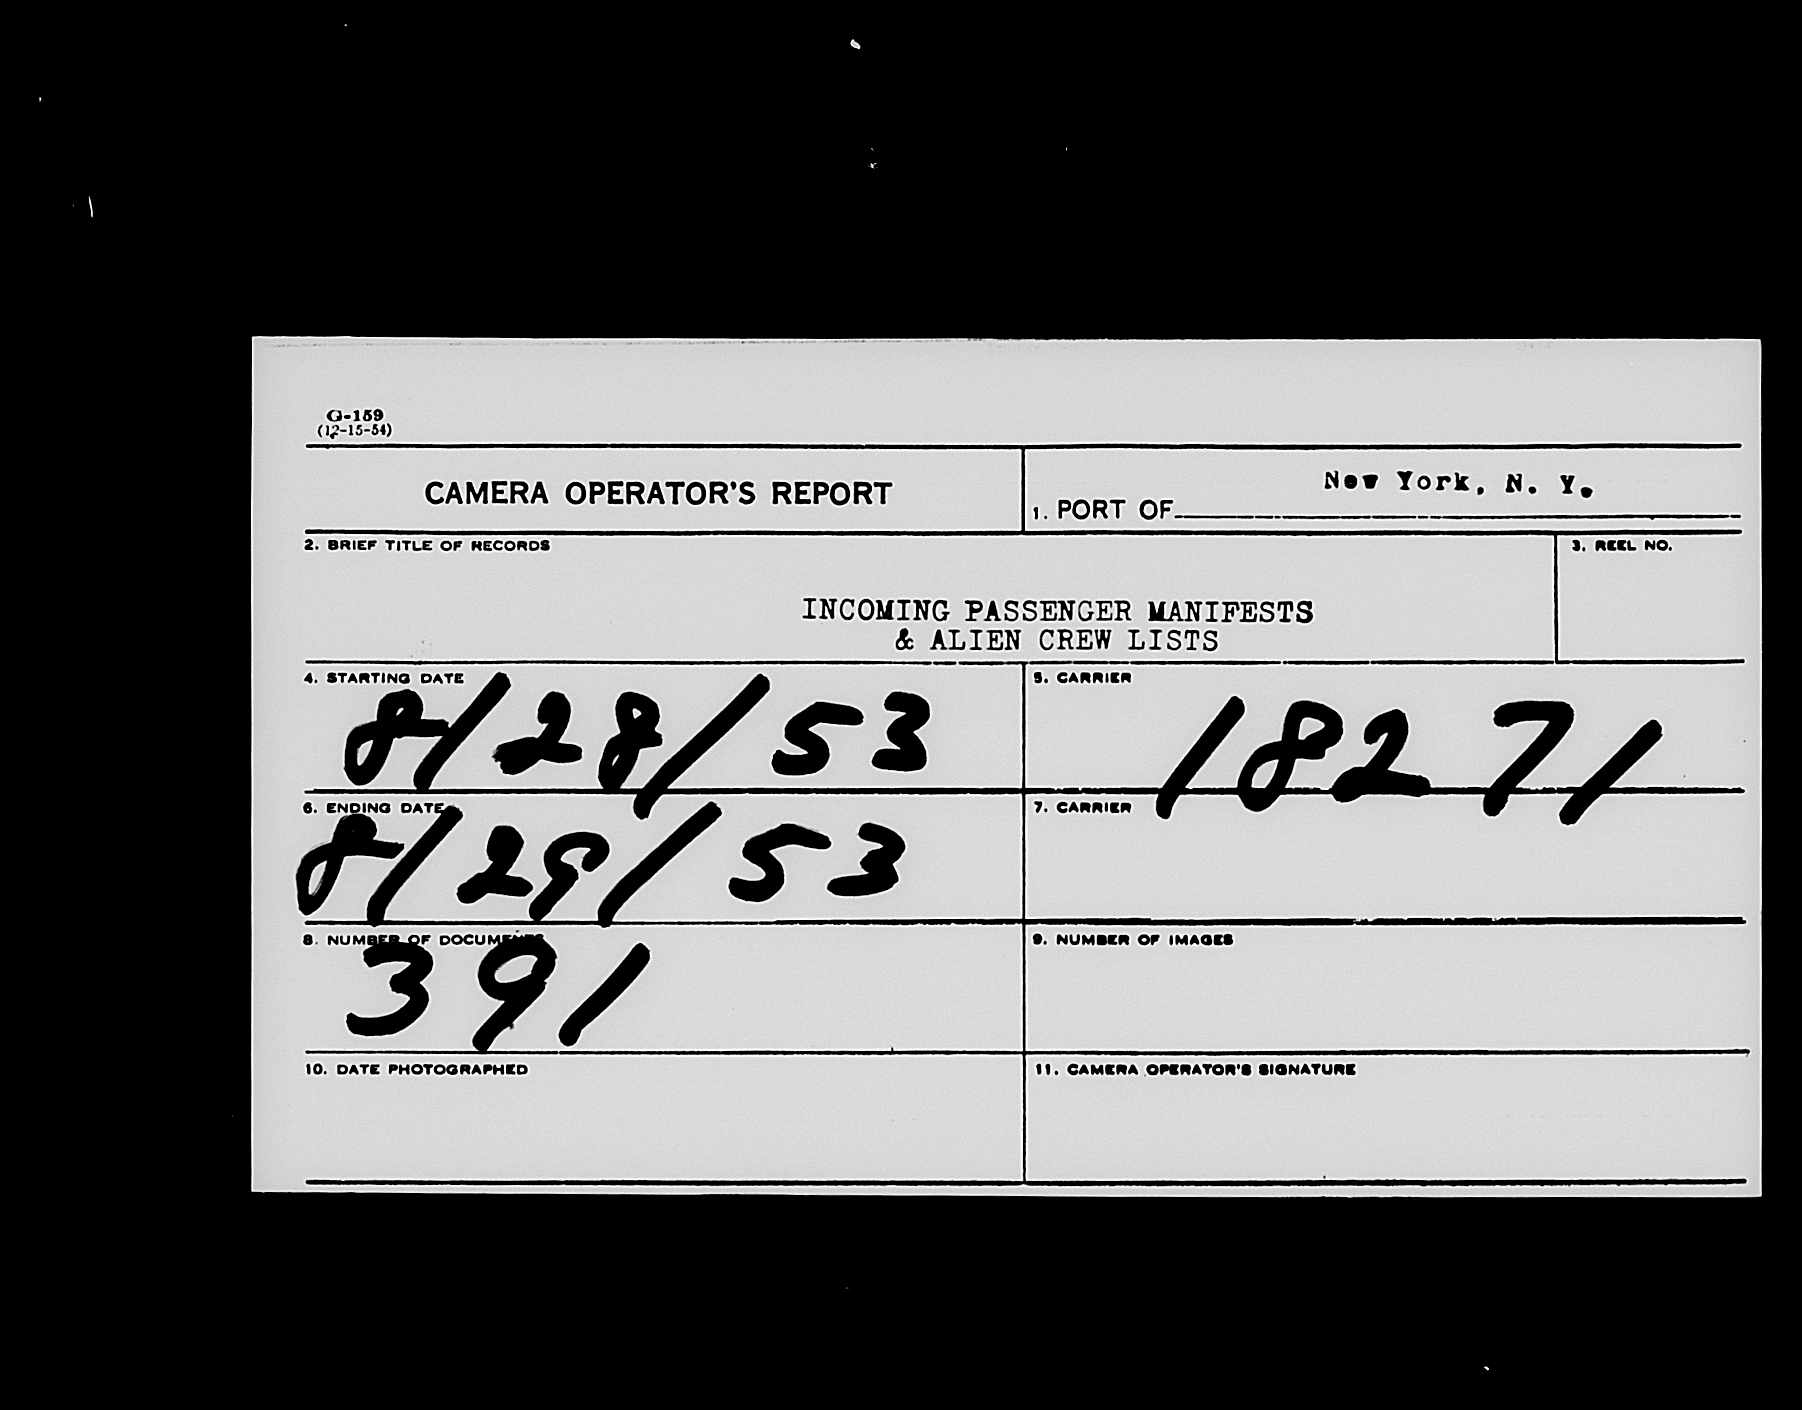 G-159
(12-15-54)
CAMERA OPERATOR'S REPORT
1. PORT OF New York, N. Y.
2. BRIEF TITLE OF RECORDS
3. REEL NO.
INCOMING PASSENGER MANIFESTS
& ALIEN CREW LISTS
4. STARTING DATE
8/28/53
5. CARRIER
18271
6. ENDING DATE
8/29/53
7. CARRIER
8. NUMBER OF DOCUMENTS
391
9. NUMBER OF IMAGES
10. DATE PHOTOGRAPHED
11. CAMERA OPERATOR'S SIGNATURE